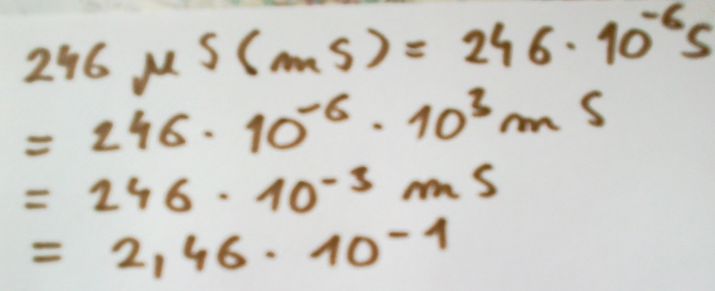 246 μS (mS) = 246 · 10⁻⁶ S
= 246 · 10⁻⁶ · 10³ mS
= 246 · 10⁻³ mS
= 2,46 · 10⁻¹